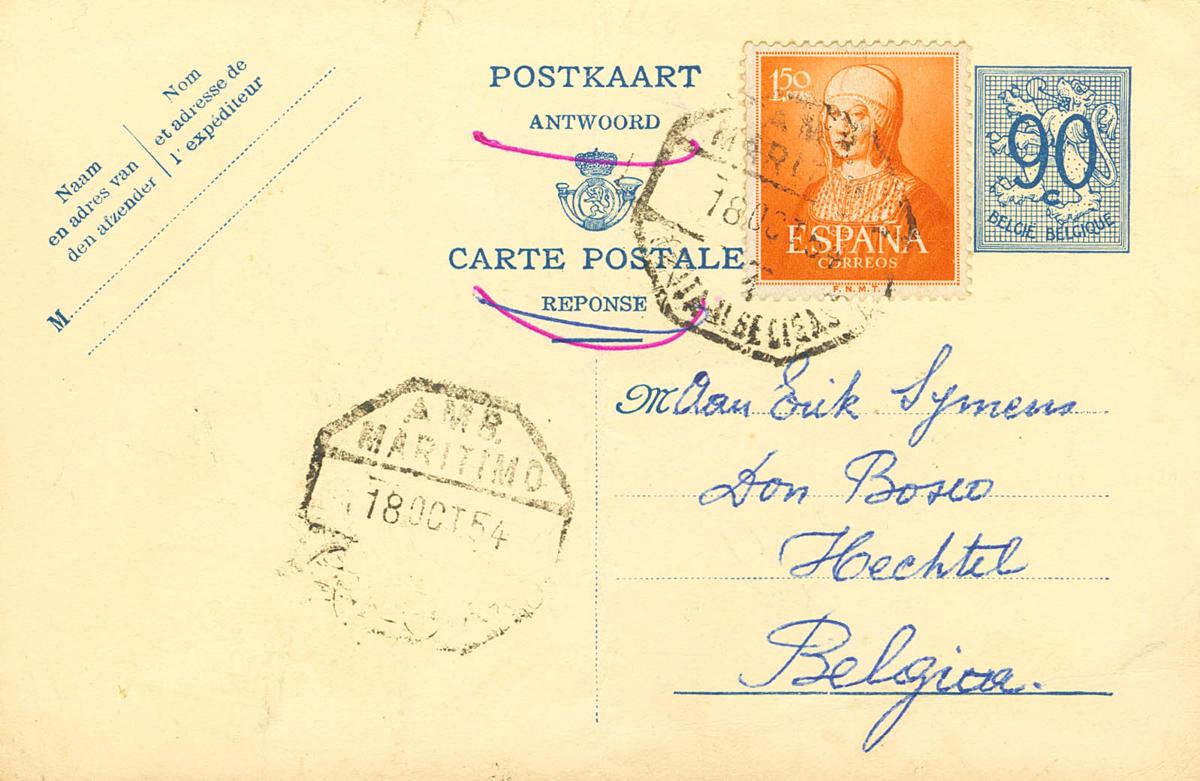 Naam
en adres van
den afzender
Nom
et adresse de
l'expéditeur
M
POSTKAART
ANTWOORD
CARTE POSTALE
REPONSE
1'50
PTAS
ESPAÑA
CORREOS
F.N.M.T.
90
C
BELGIË BELGIQUE
AMB.
MARITIMO
18 OCT 54
AMB.
MARITIMO
18 OCT 54
M Aan Erik Symens
Don Bosco
Hechtel
Belgica.